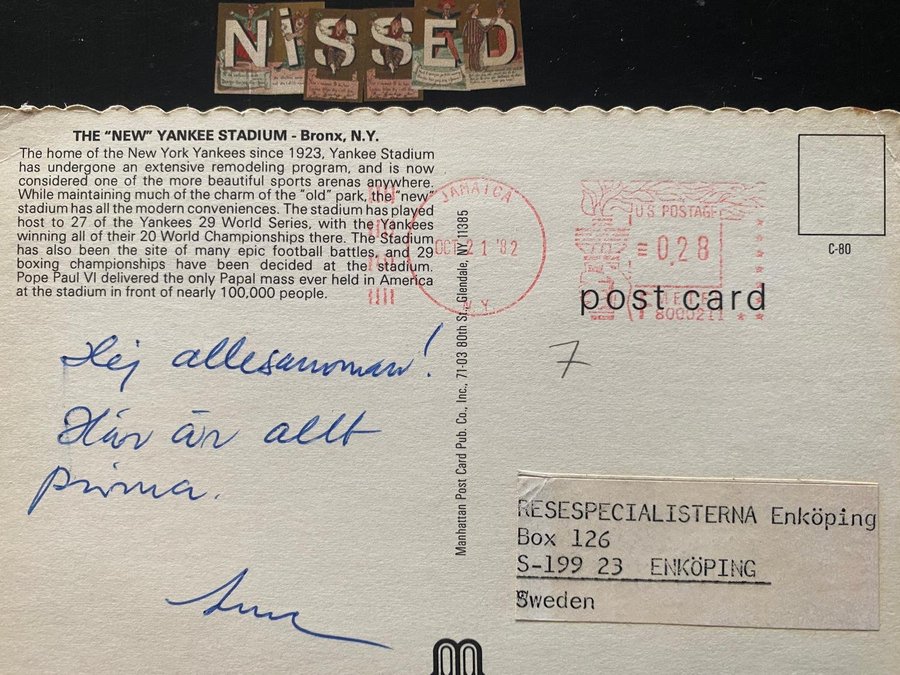 NiSSED
THE "NEW" YANKEE STADIUM - Bronx, N.Y.
The home of the New York Yankees since 1923, Yankee Stadium
has undergone an extensive remodeling program, and is now
considered one of the more beautiful sports arenas anywhere.
While maintaining much of the charm of the "old" park, the "new"
stadium has all the modern conveniences. The stadium has played
host to 27 of the Yankees 29 World Series, with the Yankees
winning all of their 20 World Championships there. The Stadium
has also been the site of many epic football battles, and 29
boxing championships have been decided at the stadium.
Pope Paul VI delivered the only Papal mass ever held in America
at the stadium in front of nearly 100,000 people.
Hej allesamman!
Här är allt
prima.
Manhattan Post Card Pub. Co., Inc., 71-03 80th St., Glendale, NY 11385
JAMAICA
OCT 21 '82
N.Y.
U.S. POSTAGE
0.28
C-80
post card
7
RESESPECIALISTERNA Enköping
Box 126
S-199 23 ENKÖPING
Sweden